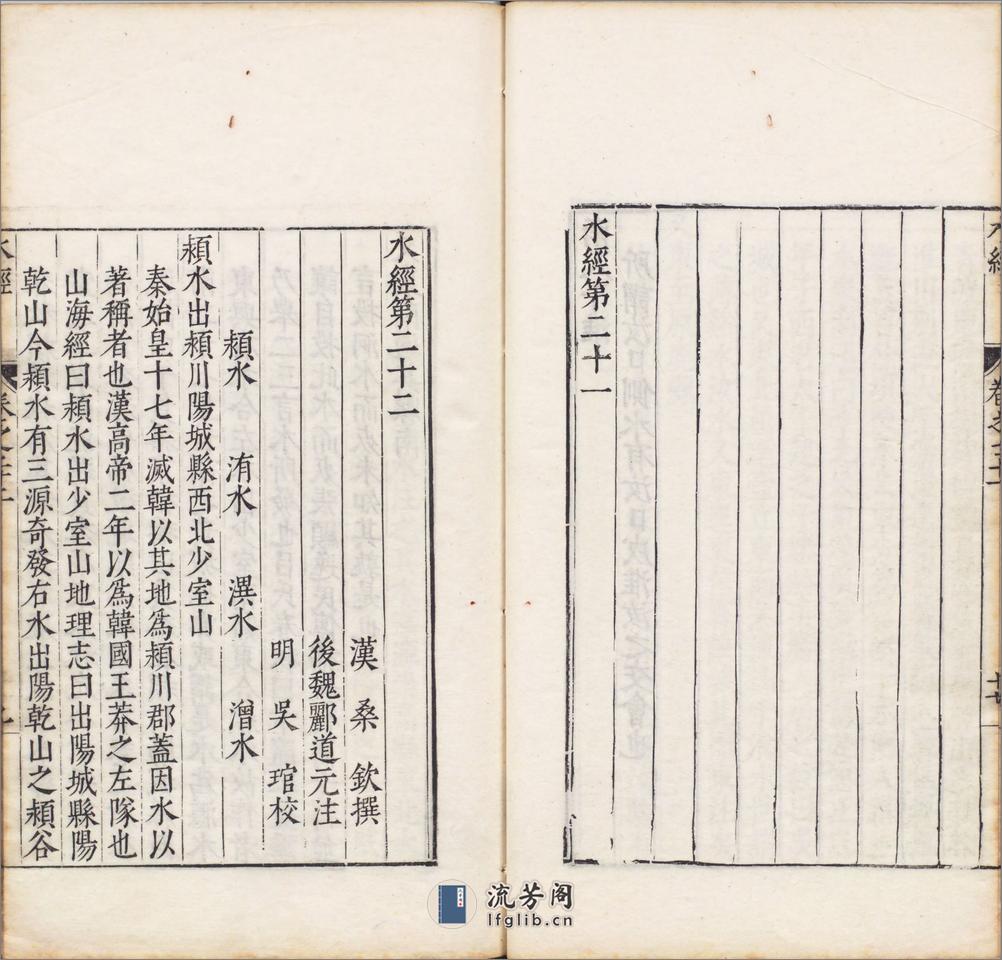 水經
卷之二十一
水經第二十一
水經第二十二
漢 桑 欽撰
後魏酈道元注
明 吳 琯校
潁水 洧水 潩水 潧水
潁水出潁川陽城縣西北少室山
秦始皇十七年滅韓以其地爲潁川郡蓋因水以
著稱者也漢高帝二年以爲韓國王莽之左隊也
山海經曰潁水出少室山地理志曰出陽城縣陽
乾山今潁水有三源奇發右水出陽乾山之潁谷
水經
流芳阁
lfglib.cn